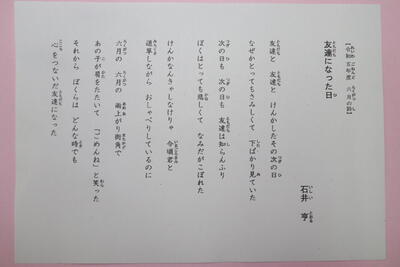 【令和五年度 六月の詩】
友達になった日
石井 亨
友達と 友達と けんかしたその次の日
なぜかとってもさみしくて 下ばかり見ていた
次の日も 次の日も 友達は知らんふり
ぼくはとっても悲しくて なみだがこぼれた
けんかなんきゃしなけりゃ 今頃君と
道草しながら おしゃべりしているのに
六月の 六月の 雨上がり街角で
あの子が肩をたたいて 「ごめんね」と笑った
それから ぼくらは どんな時でも
心をつないだ友達になった